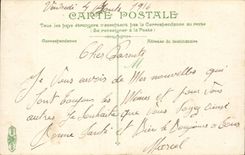 Vendredi 4 1914
CARTE POSTALE
Tous les pays étrangers n'acceptent pas la Correspondance au recto
(Se renseigner à la Poste)
Correspondance
Adresse du destinataire
Chers Parents
Je Vous envois de Mes nouvelles qui
sont toujours les Mêmes et pour Vous
autres Je Souhaite que Vous Soyez aussi
Bonne Santé et Bien le Bonjour a Tous
Marcel